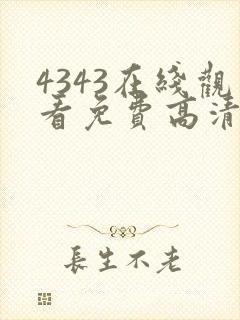 4343在綫觀
看免費高清
長生不老